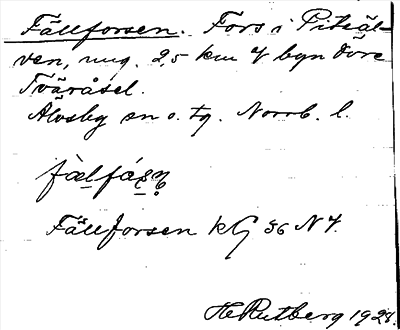 Fällforsen. Fors i Piteäl-
ven, ung. 2,5 km V byn Övre
Tväråsel.
Älvsby sn o. tg. Norrb. l.
Fällforsen kG 56 N 7.
H Rutberg 1928.